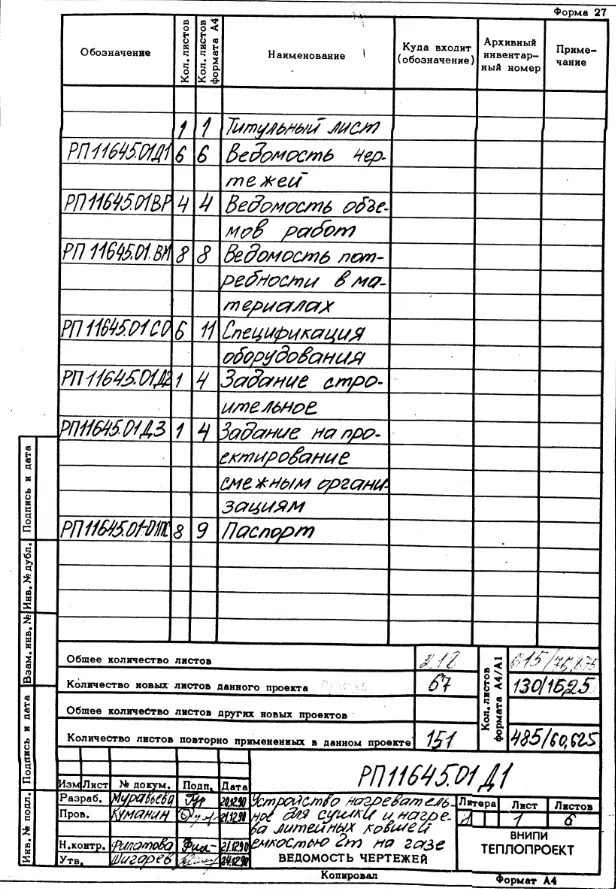 Форма 27
Обозначение Кол. листов Кол. листов формата А4 Наименование Куда входит (обозначение) Архивный инвентарный номер Примечание
1 1 Титульный лист
РП11645.01Д1 6 6 Ведомость чер-
тежей
РП11645.01ВР 4 4 Ведомость объе-
мов работ
РП11645.01.ВМ 8 8 Ведомость пот-
ребности в ма-
териалах
РП11645.01СО 6 11 Спецификация
оборудования
РП11645.01Д2 1 4 Задание стро-
ительное
РП11645.01ДЗ 1 4 Задание на про-
ектирование
смежным органи-
зациям
РП11645.01-01ПС 8 9 Паспорт
Общее количество листов 218
Количество новых листов данного проекта 67 130/16,25
Общее количество листов других новых проектов
Количество листов повторно примененных в данном проекте 151 485/60,625
Кол. листов формата А4/А1
Подпись и дата
Инв. № дубл.
Взам. инв. №
Подпись и дата
Инв. № подл.
РП11645.01Д1
Изм Лист № докум. Подп. Дата
Разраб. Муравьева 20.12.90
Пров. Куманин 21.12.90
Н.контр. Филатова 21.12.90
Утв. Шигарев 24.12.90
Устройство нагреватель-
ное для сушки и нагре-
ва литейных ковшей
емкостью 5т на газе
ВЕДОМОСТЬ ЧЕРТЕЖЕЙ
Литера Лист Листов
1 6
ВНИПИ
ТЕПЛОПРОЕКТ
Копировал Формат А4